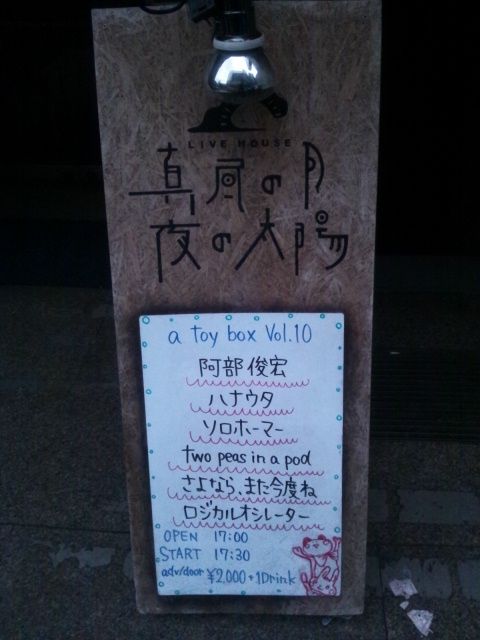 LIVE HOUSE
真昼の月
夜の太陽
a toy box Vol.10
阿部俊宏
ハナウタ
ソロホーマー
two peas in a pod
さよなら、また今度ね
ロジカルオシレーター
OPEN 17:00
START 17:30
adv/door ¥2,000+1Drink